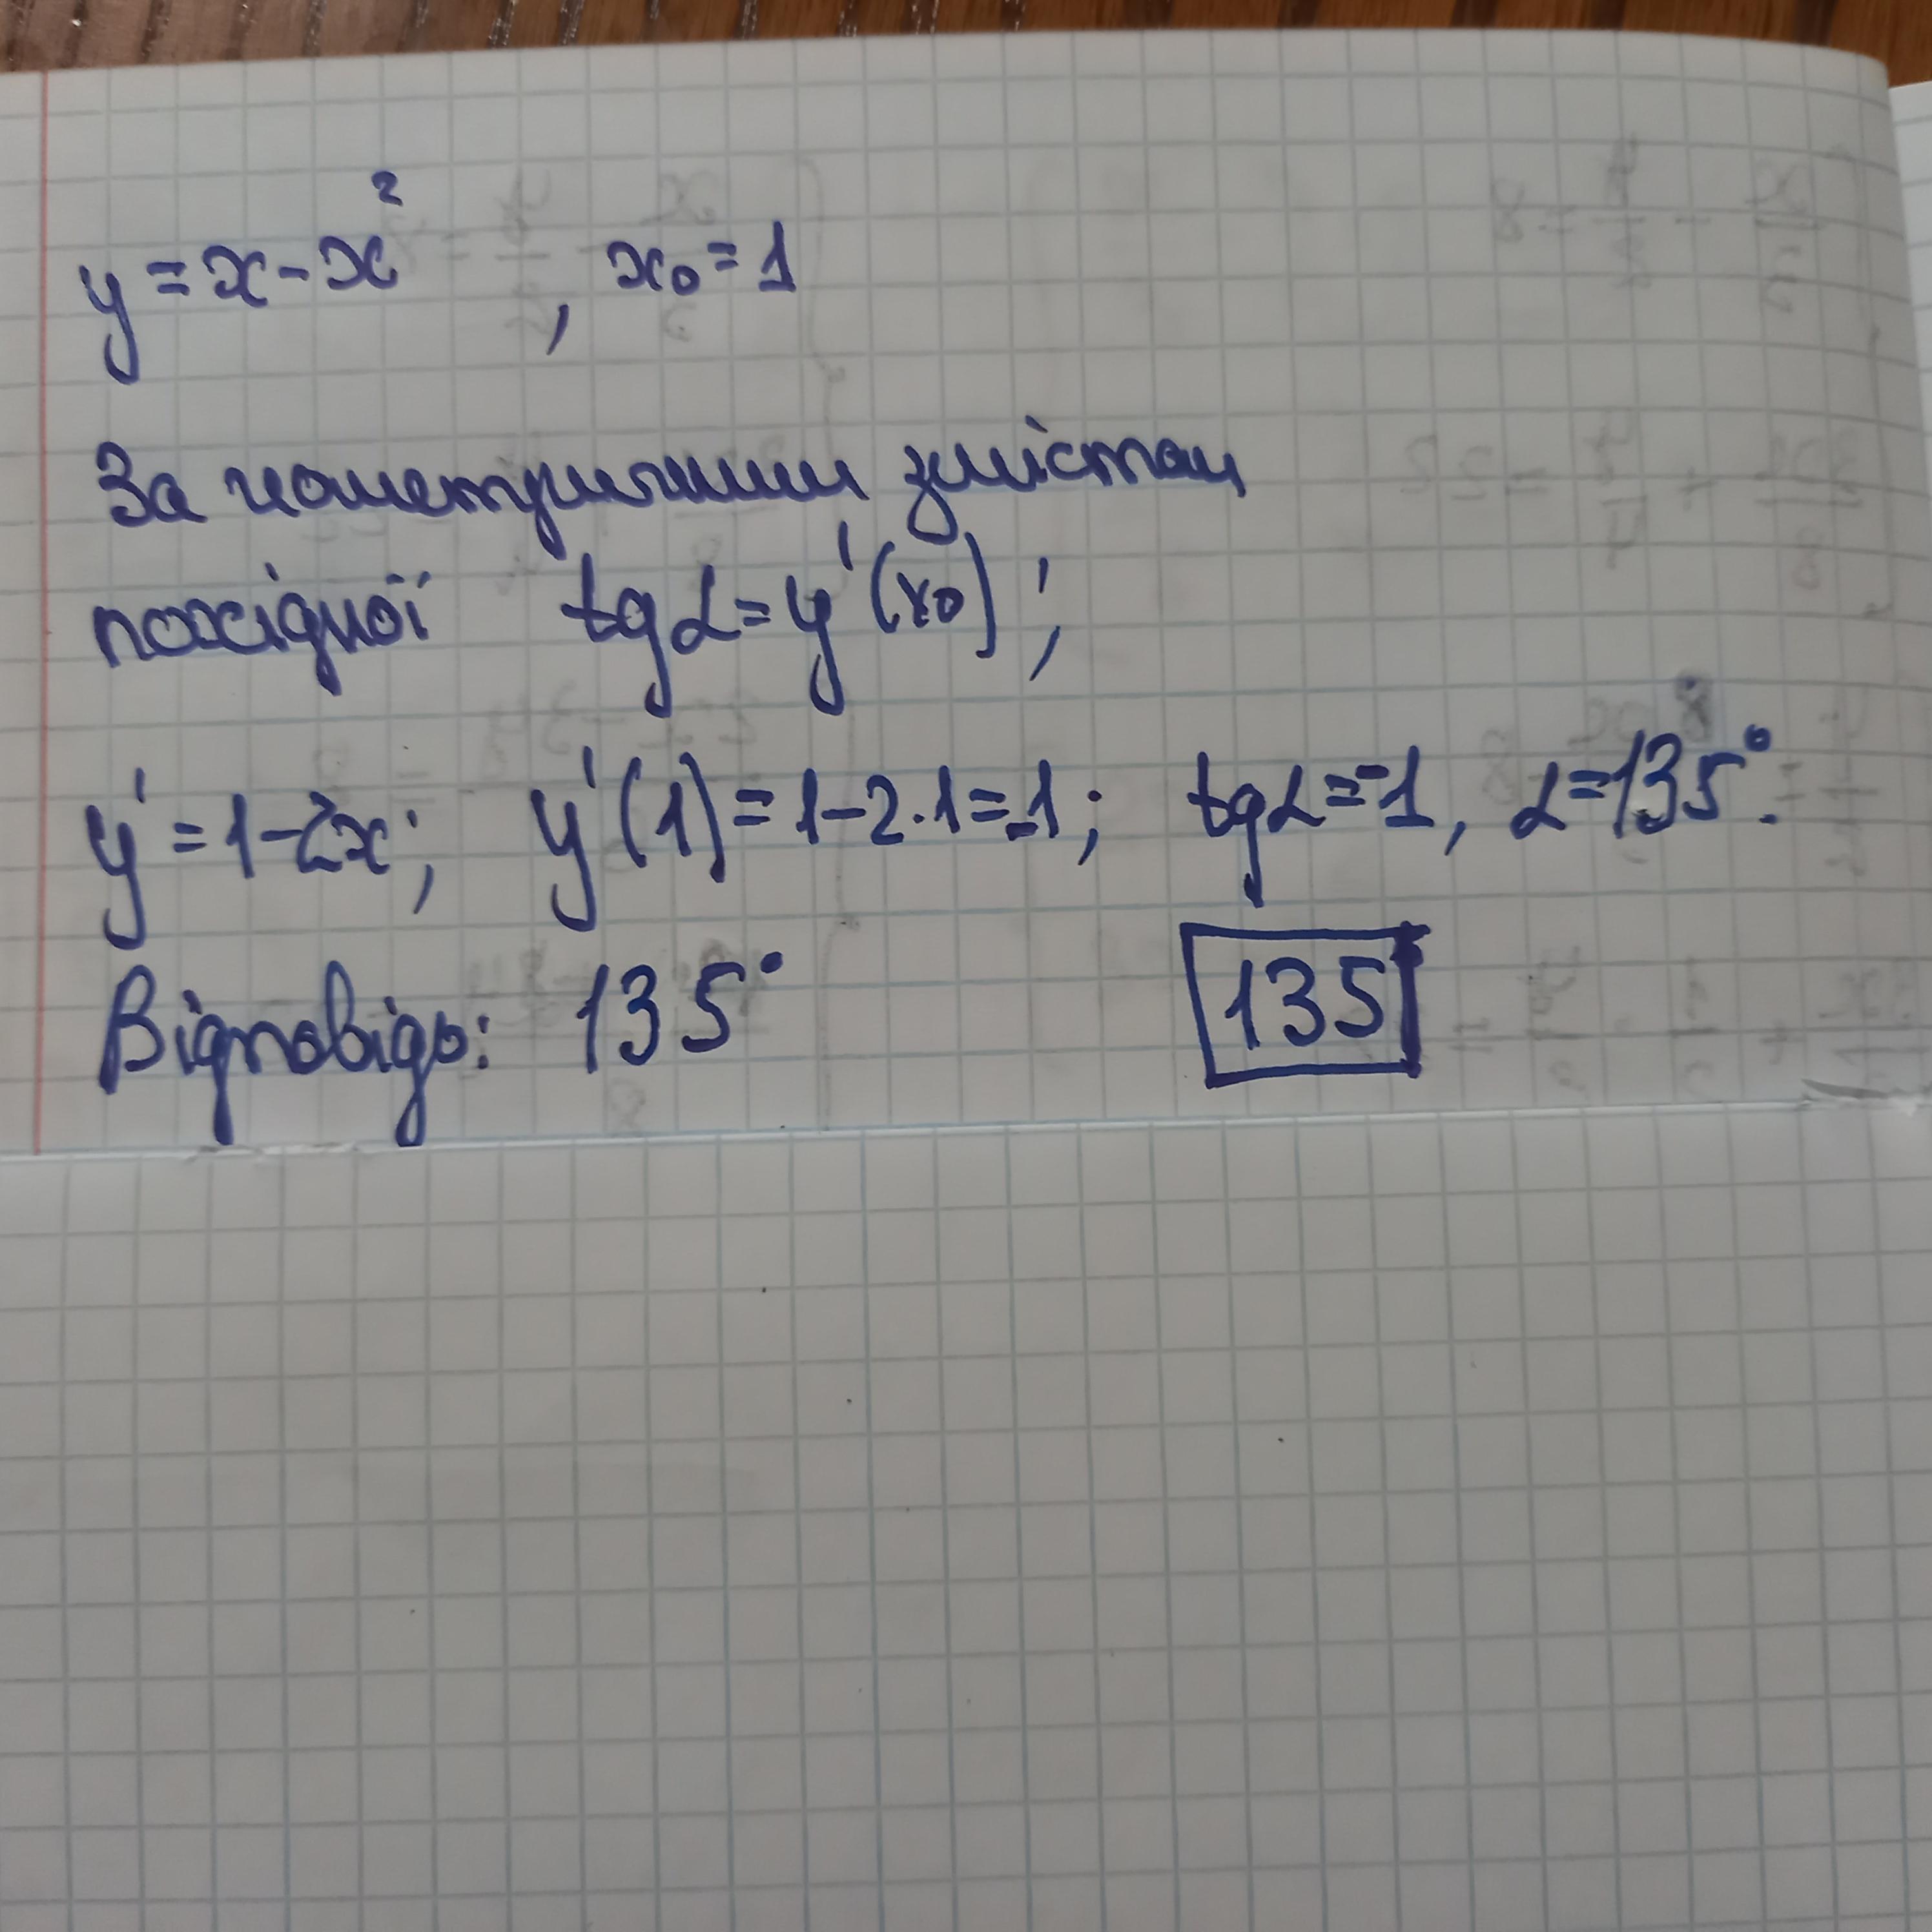 y = x - x², x₀ = 1
За геометричним змістом
похідної tg α = y'(x₀);
y' = 1 - 2x; y'(1) = 1 - 2·1 = -1; tg α = -1, α = 135°.
Відповідь: 135° 135